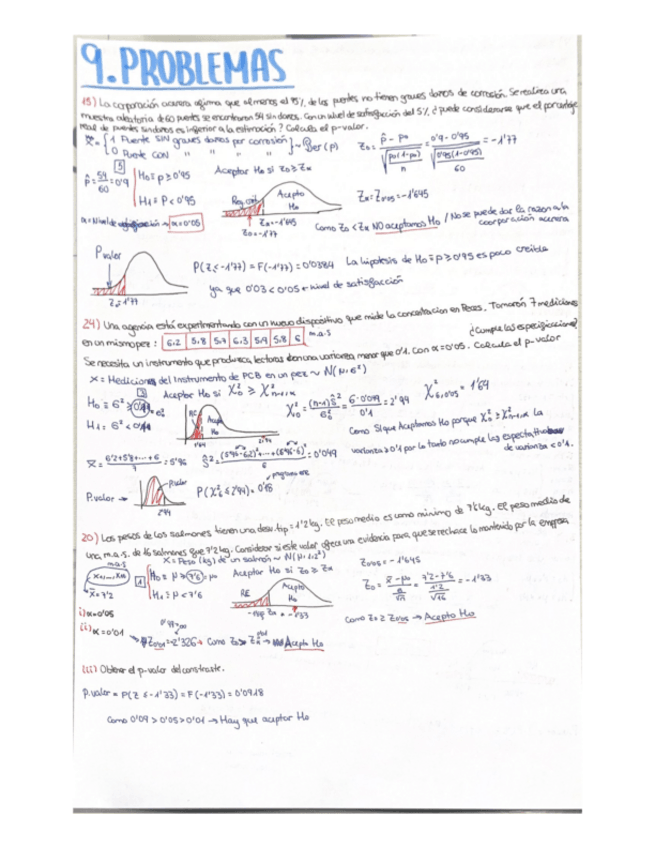 9. PROBLEMAS
15) La corporación acerera afirma que al menos el 95% de los puentes no tienen graves danos de corrosión. Se realiza una
muestra aleatoria de 60 puentes se encontraron 54 sin danos. Con un nivel de satisfacción del 5% ¿puede considerarse que el porcentaje
real de puentes sin danos es inferior a la estimación? Calcula el p-valor.
X = { 1 Puente SIN graves danos por corrosión } ~ Ber (p)
0 Puente CON " " " "
Z₀ = p̂ - p₀ / √(p₀(1-p₀)/n) = 0'9 - 0'95 / √(0'95(1-0'95)/60) = -1'77
5
p̂ = 54/60 = 0'9
H₀ ≡ p ≥ 0'95
H₁ ≡ P < 0'95
Aceptar H₀ si Z₀ ≥ Zα
Acepto H₀
Zα = -1'645
Z₀ = -1'77
Zα = Z₀'₀₅ = -1'645
α = 0'05
Como Z₀ < Zα NO aceptamos H₀ / No se puede dar la razon a la
corporación acerera
P valor
Z ≤ -1'77
P(Z ≤ -1'77) = F(-1'77) = 0'0384 La hipotesis de H₀ ≡ p ≥ 0'95 es poco creible
ya que 0'03 < 0'05 ← nivel de satisfacción
24) Una agencia está experimentando con un nuevo dispositivo que mide la concentracion en Peces. Tomaron 7 mediciones
en un mismo pez: 6,2 5,8 5,9 6,3 5,9 5,8 6 m.a.s
Se necesita un instrumento que produzca lecturas con una varianza menor que 0'1. Con α=0'05. Calcula el p-valor
X = Mediciones del Instrumento de PCB en un pez ~ N(μ, σ²)
3
Aceptar H₀ si X₀² ≥ X²ₙ₋₁,α
H₁ ≡ σ² <
X₀² = (n-1)ŝ² / σ₀² = 6·0'049 / 0'1 = 2'94
X²₆,₀'₀₅ = 1'64
Como Sí que Aceptamos H₀ porque X₀² ≥ X²ₙ₋₁,α La
varianza ≥ 0'1 por lo tanto no cumple las
de varianza < 0'1.
X̄ = 6'2+5'8+···+6 / 7 = 5'96
P.valor →
2'94
P(X₆² ≤ 2'94) = 0'18
20) Los pesos de los salmones tienen una desv. tip = 1'2 kg. El peso medio es como mínimo de 7'6 kg. El peso medio de
una m.a.s. de 16 salmones que 7'2 kg. Considerar si este valor ofrece una evidencia para que se rechace lo mantenido por la empresa
X = Peso (kg) de un salmón ~ N(μ, 1'2²)
m.a.s
x̄ = 7'2
1
H₀ ≡ μ ≥ 7'6 = μ₀
H₁ ≡ μ < 7'6
Aceptar H₀ si Z₀ ≥ Zα
Acepto H₀
-1'33
Z₀'₀₅ = -1'645
Z₀ = x̄ - μ₀ / σ/√n = 7'2 - 7'6 / 1'2/√16 = -1'33
Como Z₀ ≥ Z₀'₀₅ → Acepto H₀
i) α = 0'05
ii) α = 0'01
Z₀'₀₁ = -2'326 → Como Z₀ > Zα → Acepto H₀
iii) Obtener el p-valor del constraste.
P.valor = P(Z ≤ -1'33) = F(-1'33) = 0'0918
Como 0'09 > 0'05 > 0'01 → Hay que aceptar H₀